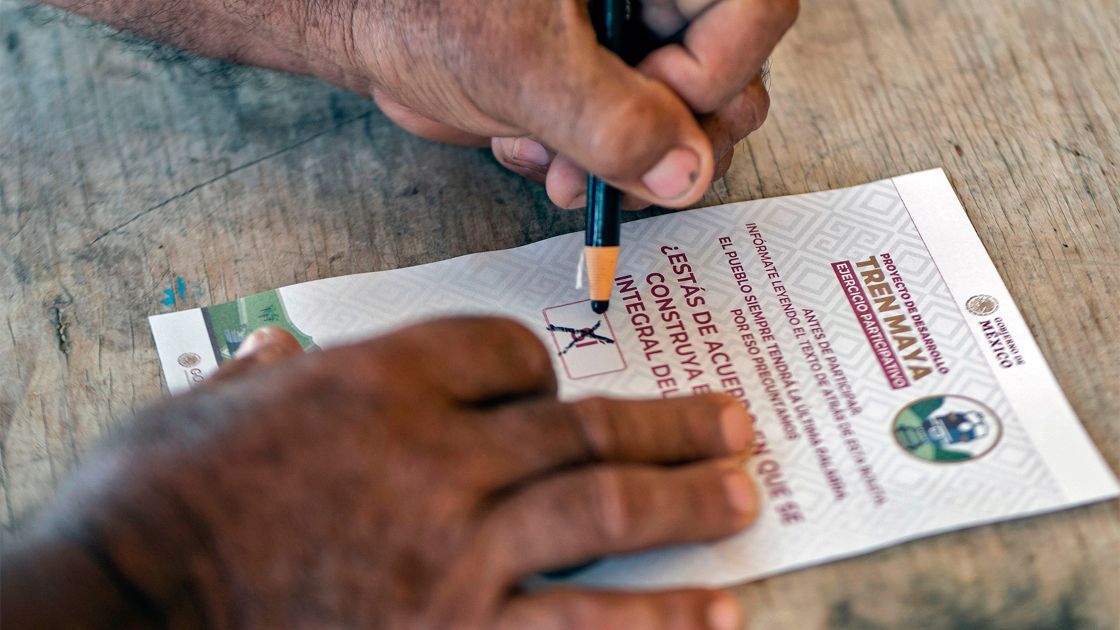 GOBIERNO DE
MÉXICO
PROYECTO DE DESARROLLO
TREN MAYA
EJERCICIO PARTICIPATIVO
ANTES DE PARTICIPAR
INFÓRMATE LEYENDO EL TEXTO DE ATRÁS DE ESTA BOLETA
EL PUEBLO SIEMPRE TENDRÁ LA ÚLTIMA PALABRA
POR ESO PREGUNTAMOS
¿ESTÁS DE ACUERDO EN QUE SE
CONSTRUYA E
INTEGRAL DEL